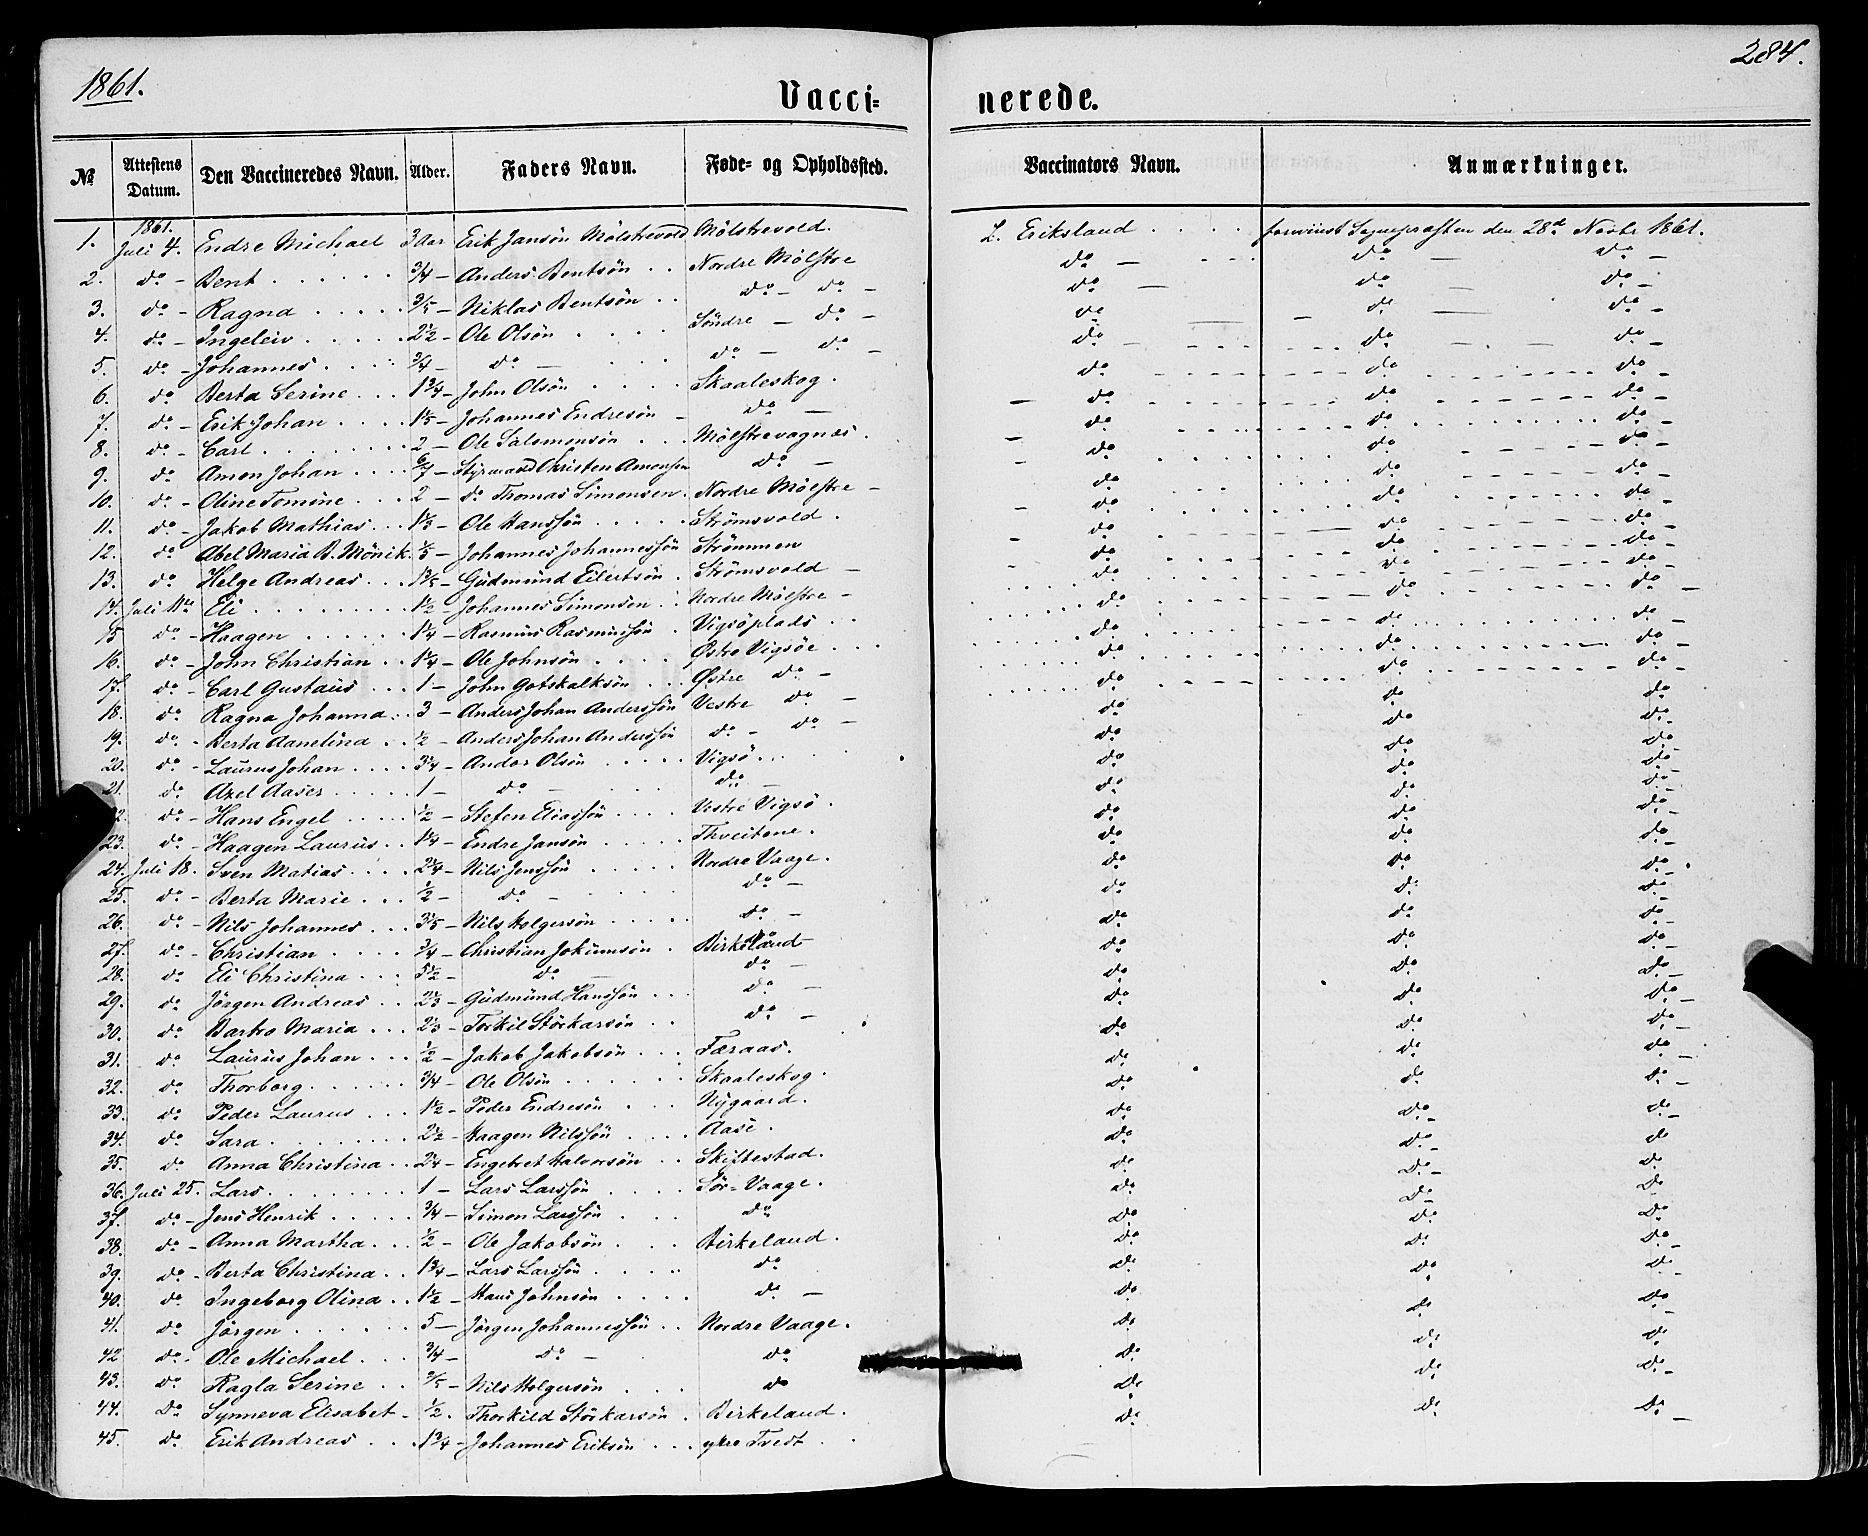 1861.
284.
Vacci= nerede.
№ Attestens Datum. Den Vaccineredes Navn. Alder. Faders Navn. Føde- og Opholdssted. Vaccinators Navn. Anmærkninger.
1861.
1. Juli 4. Endre Michael 3 Aar Erik Jansøn Mølstrevold Mølstrevold. L. Eriksland forevist Sognepræsten den 28de Novbr 1861.
2. do - Bent 3/4 - Anders Bentsøn Nordre Mølstre do - do - do -
3. do - Ragna 3/5 - Niklas Bentsøn do - do - do - do - do -
4. do - Ingeleiv 2 1/2 - Ole Olsøn Søndre - do - do do do -
5. do - Johannes 3/4 - do - do - do - do do do -
6. do Berta Serine 1 3/4 - John Olsøn Skaaleskog. do do do -
7. do - Erik Johan 1 1/5 - Johannes Endresøn - do - do do do -
8. do - Carl 2 - Ole Salomonsøn Mølstrevagnæs. do do do -
9. do Amon Johan 6/7 - Styrmand Christen Amonsen do - do do do -
10. do - Oline Tomine 2 - do Thomas Simonsen. Nordre Mølstre - do do do -
11. do - Jakob Mathias 1 1/3 - Ole Hanssøn Strømsvold. do do do -
12. do Abel Maria B. Mönik. 1/5 - Johannes Johannessøn Strømmen do do do -
13. do Helge Andreas 1 3/5 - Gudmund Eilertsøn Strømsvold - do do do -
14. Juli 11te Eli 1 1/2 - Johannes Simonsen Nordre Mølstre - do do do -
15 do - Haagen 1 1/4 - Rasmus Rasmussøn Vigsøplads do do do -
16. do - John Christian 1 1/4 - Ole Johnsøn Østre Vigsøe do do do -
17. do - Carl Gustavus 1 - John Gotskalksøn Østre do - do do do -
18. do Ragna Johanna 3 - Anders Johan Anderssøn Vestre do - do do do -
19. do - Berta Aanelina 1/2 - Anders Johan Anderssøn do - do - do do do -
20. do - Laurus Johan 3 1/4 - Andor Olsøn Vigsø do do do -
21. do Axel Aaser 1 - do - do - do do do -
22. do - Hans Engel 1/2 - Stefen Eliassøn Vestre Vigsø. do do do -
23. do - Haagen Laurus 1 1/4 - Endre Jansøn Thveitene. do do do -
24. Juli 18. Sven Matias 2 1/4 - Nils Jenssøn Nordre Vaage. do do do -
25. do - Berta Marie 1/2 - do - do - do do do -
26. do - Nils Johannes 3 1/5 - Nils Holgersøn do - do do do -
27. do - Christian 3/4 - Christian Jokumsøn. Birkeland - do do do -
28. do Eli Christina 5 1/2 - do - do - do do do -
29. do Jørgen Andreas 2 1/3 - Gudmund Hanssøn do - do do do -
30. do Bartro Maria 2 1/3 - Torkil Störkarsøn do - do do do -
31. do Laurus Johan 1/2 - Jakob Jakobsøn Færaas. do do do -
32. do Thorborg 3/4 - Ole Olsøn Skaaleskog. do do do -
33. do Peder Laurus 1 1/2 - Peder Endresøn Nygaard. do do do -
34. do Sara 2 1/2 - Haagen Nilssøn Aase. do do do
35. do Anna Christina 2 1/4 - Engebret Halvorsøn Skiftestad. do do do
36. Juli 25. Lars 1 - Lars Larssøn Sør-Vaage. do do do
37. do - Jens Henrik 3/4 - Simon Larssøn do do do do
38. do - Anna Martha 1/2 - Ole Jakobsøn Birkeland. do do do -
39. do - Berta Christina 1 3/4 - Lars Larssøn do do do do -
40. do Ingeborg Olina 1 1/2 - Hans Johnsøn do - do do do -
41. do Jørgen 5 - Jørgen Johannessøn Nordre Vaage. do do do
42 do - Ole Michael 3/4 - do - do do do do -
43. do Ragla Serine 2/5 - Nils Holgersøn do do do do -
44. do Synneva Elisabet 1/2. Thorkild Störkarsøn. Birkeland. do do do -
45. do Erik Andreas 1 3/4 - Johannes Eriksøn ytre Tvedt